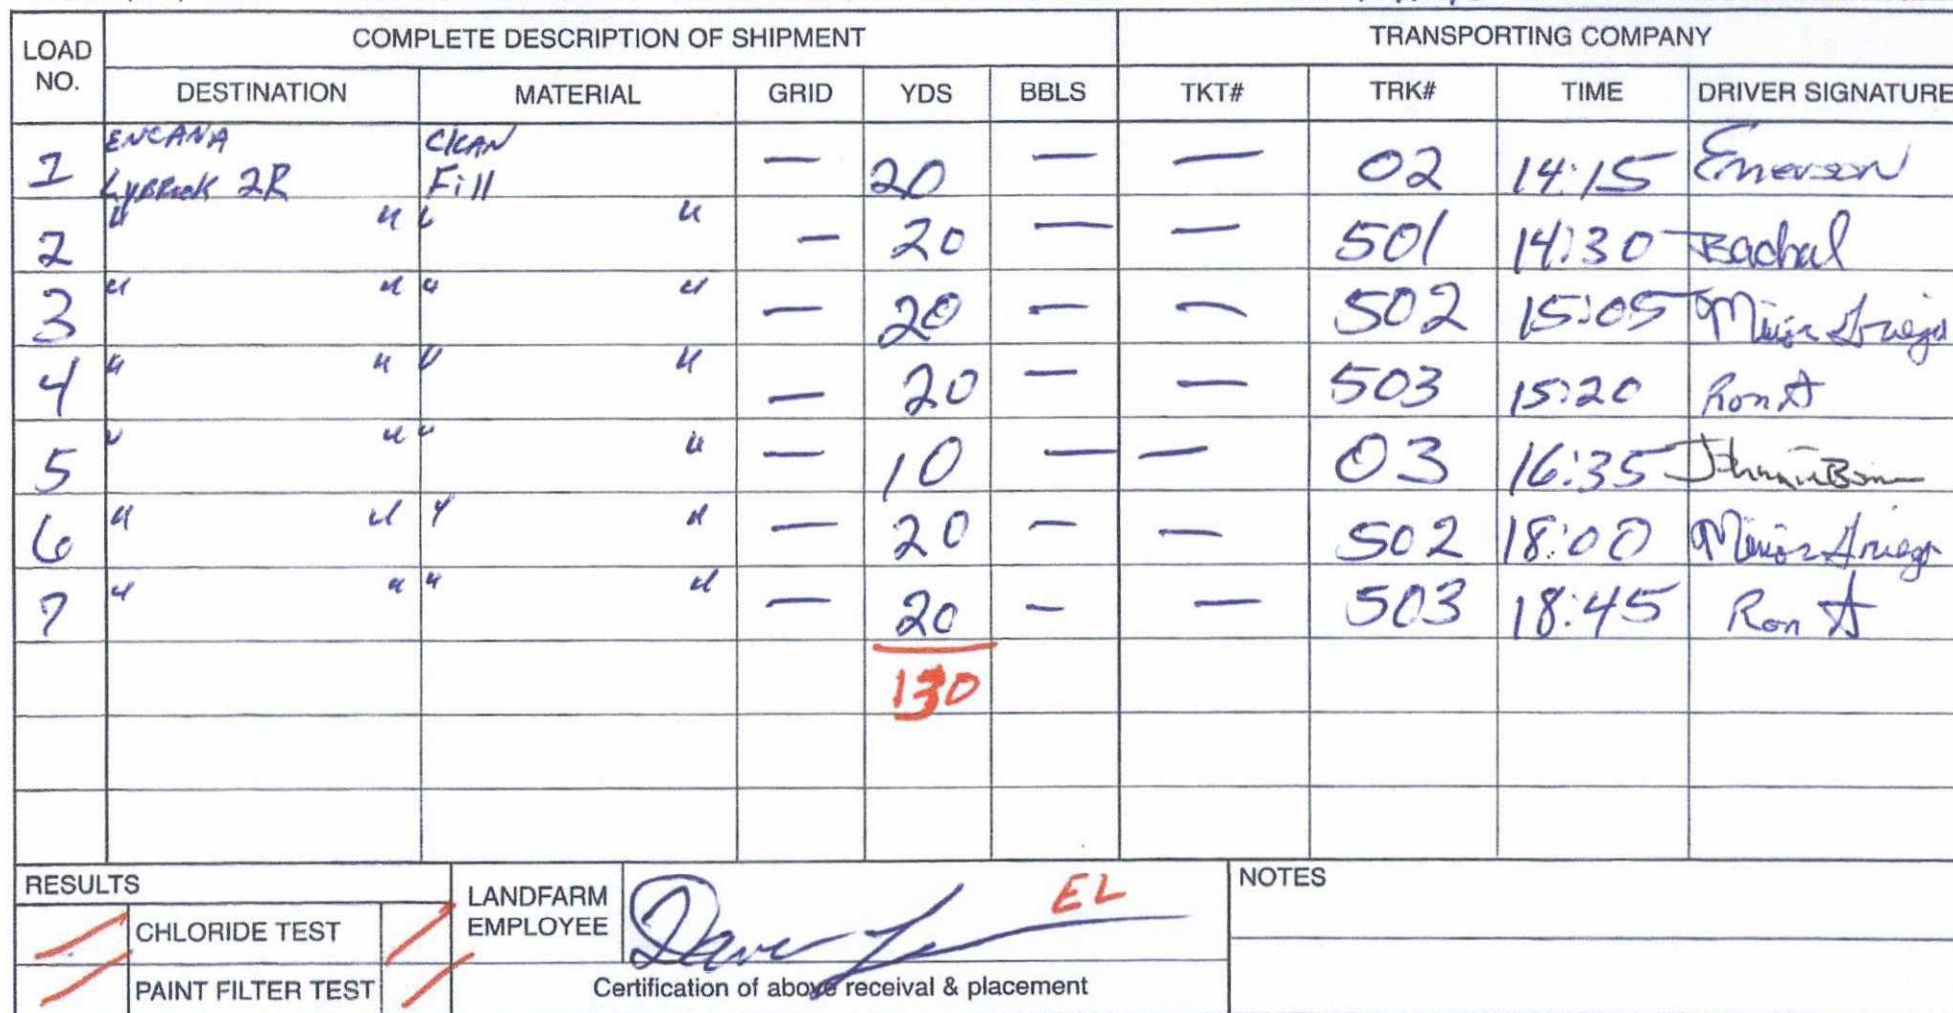 LOAD NO. COMPLETE DESCRIPTION OF SHIPMENT TRANSPORTING COMPANY
DESTINATION MATERIAL GRID YDS BBLS TKT# TRK# TIME DRIVER SIGNATURE
1 ENCANA Lybrook 2R Clean Fill — 20 — — 02 14:15 Emerson
2 " " " " — 20 — — 501 14:30
3 " " " " — 20 — — 502 15:05
4 " " " " — 20 — — 503 15:20 Ron A
5 " " " " — 10 — — 03 16:35
6 " " " " — 20 — — 502 18:00
7 " " " " — 20 — — 503 18:45 Ron A
130
RESULTS
CHLORIDE TEST
PAINT FILTER TEST
LANDFARM EMPLOYEE Dave EL
Certification of above receival & placement
NOTES